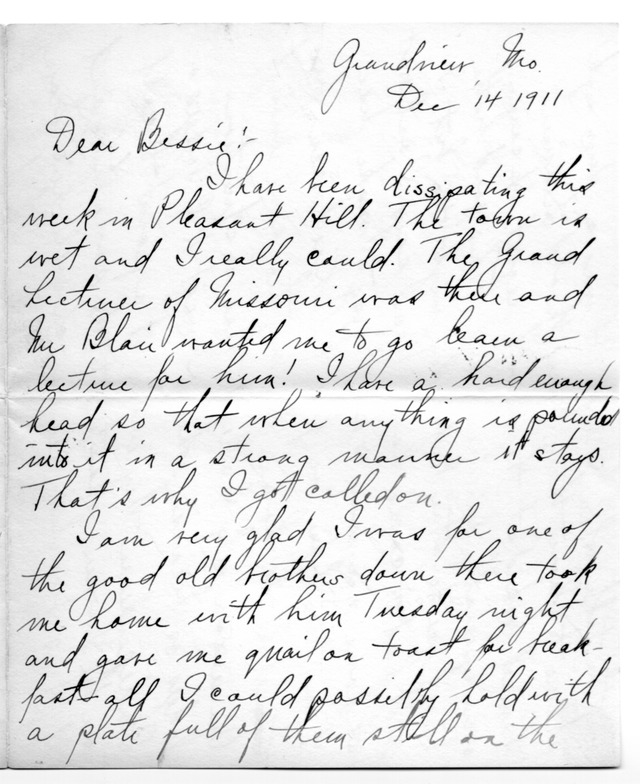 Grandview, Mo.
Dec 14 1911
Dear Bessie:-
I have been dissipating this
week in Pleasant Hill. The town is
wet and I really could. The Grand
Lecturer of Missouri was there and
Mr Blair wanted me to go learn a
lecture for him! I have a hard enough
head so that when anything is pounded
into it in a strong manner it stays.
That's why I got called on.
I am very glad I was for one of
the good old brothers down there took
me home with him Tuesday night
and gave me quail on toast for break-
fast - all I could possibly hold with
a plate full of them still on the